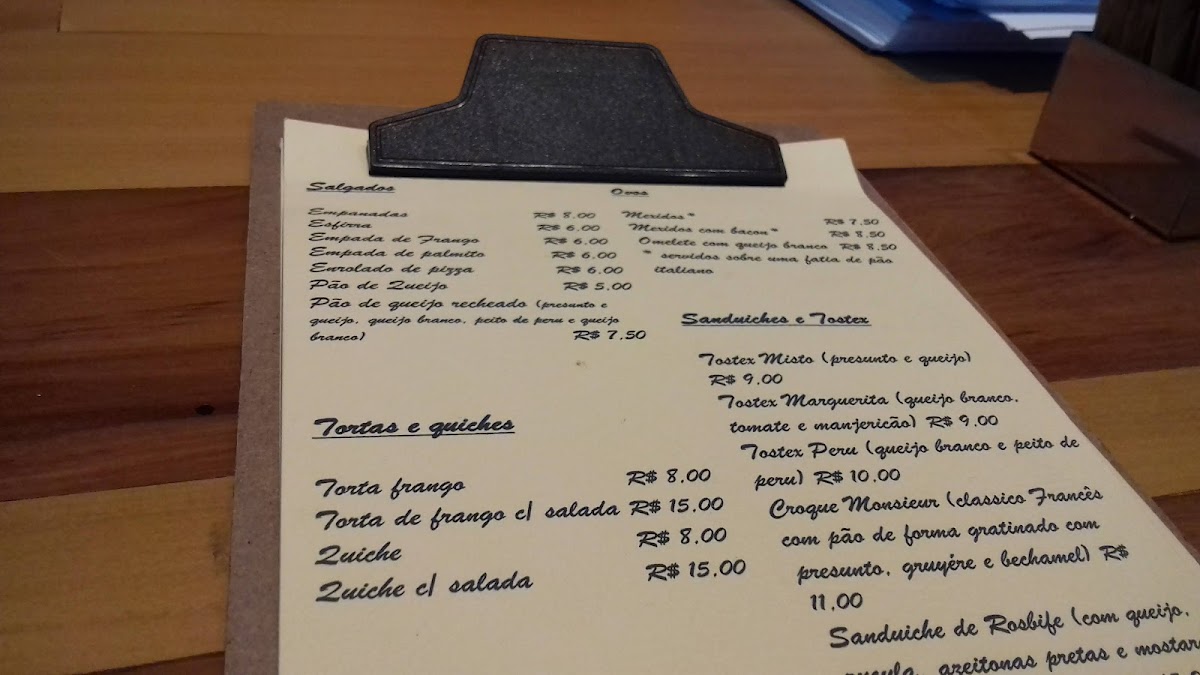 Salgados
Empanadas R$ 8,00
Esfirra R$ 6,00
Empada de Frango R$ 6,00
Empada de palmito R$ 6,00
Enrolado de pizza R$ 6,00
Pão de Queijo R$ 5,00
Pão de queijo recheado (presunto e
queijo, queijo branco, peito de peru e queijo
branco) R$ 7,50
Tortas e quiches
Torta frango R$ 8,00
Torta de frango c/ salada R$ 15,00
Quiche R$ 8,00
Quiche c/ salada R$ 15,00
Ovos
Mexidos* R$ 7,50
Mexidos com bacon* R$ 8,50
Omelete com queijo branco R$ 8,50
* servidos sobre uma fatia de pão
italiano
Sanduiches e Tostex
Tostex Misto (presunto e queijo)
R$ 9,00
Tostex Marguerita (queijo branco,
tomate e manjericão) R$ 9,00
Tostex Peru (queijo branco e peito de
peru) R$ 10,00
Croque Monsieur (classico Francês
com pão de forma gratinado com
presunto, gruyére e bechamel) R$
11,00
Sanduiche de Rosbife (com queijo,
azeitonas pretas e